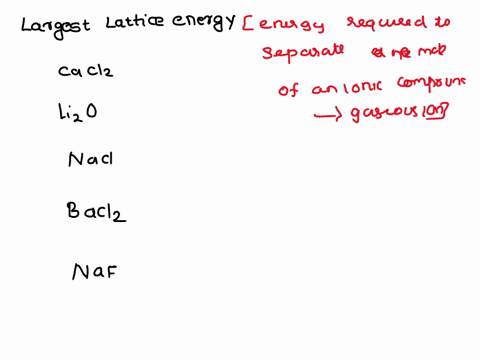 Largest Lattice energy [energy required to
separate one mole
of an ionic compound
→ gaseous ion]
CaCl2
Li2O
NaCl
BaCl2
NaF